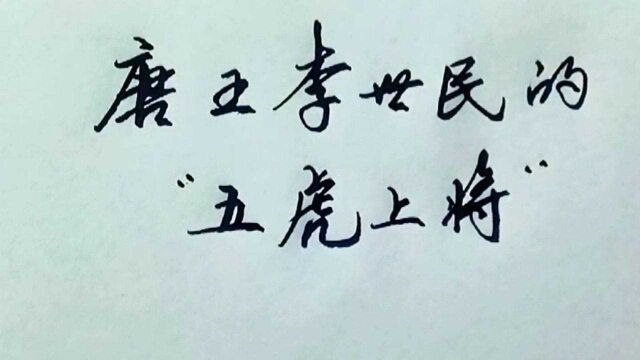 唐王李世民的
“五虎上将”